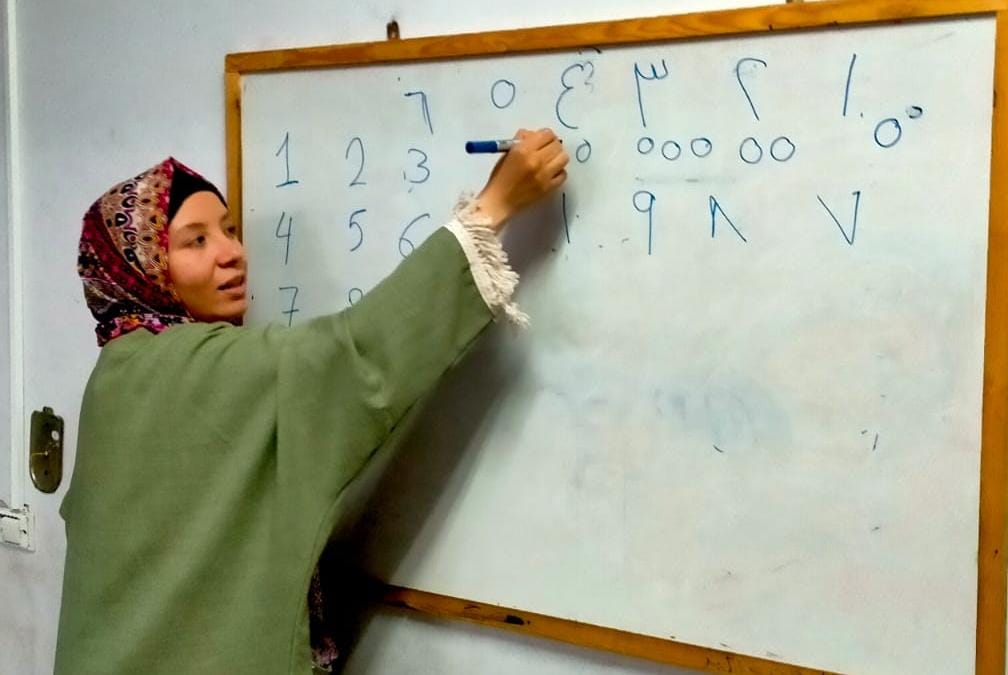 ١ ٢ ٣ ٤ ٥ ٦
1 2 3
٧ ٨ ٩ ١٠
4 5 6
7